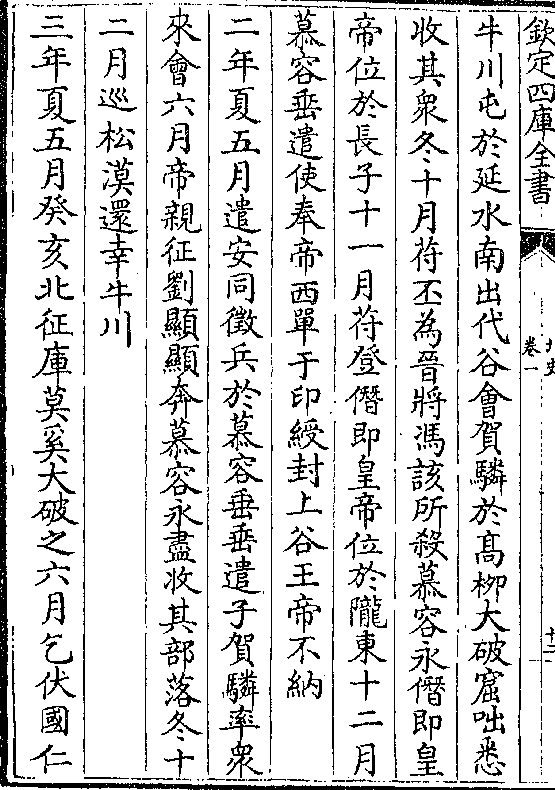 欽定四庫全書
北史
卷一
十二
牛川屯於延水南出代谷會賀驎於髙柳大破窟咄悉
收其衆冬十月苻丕為晉將馮該所殺慕容永僭即皇
帝位於長子十一月苻登僭即皇帝位於隴東十二月
慕容垂遣使奉帝西單于印綬封上谷王帝不納
二年夏五月遣安同徵兵於慕容垂垂遣子賀驎率衆
來會六月帝親征劉顯顯奔慕容永盡收其部落冬十
二月巡松漠還幸牛川
三年夏五月癸亥北征庫莫奚大破之六月乞伏國仁